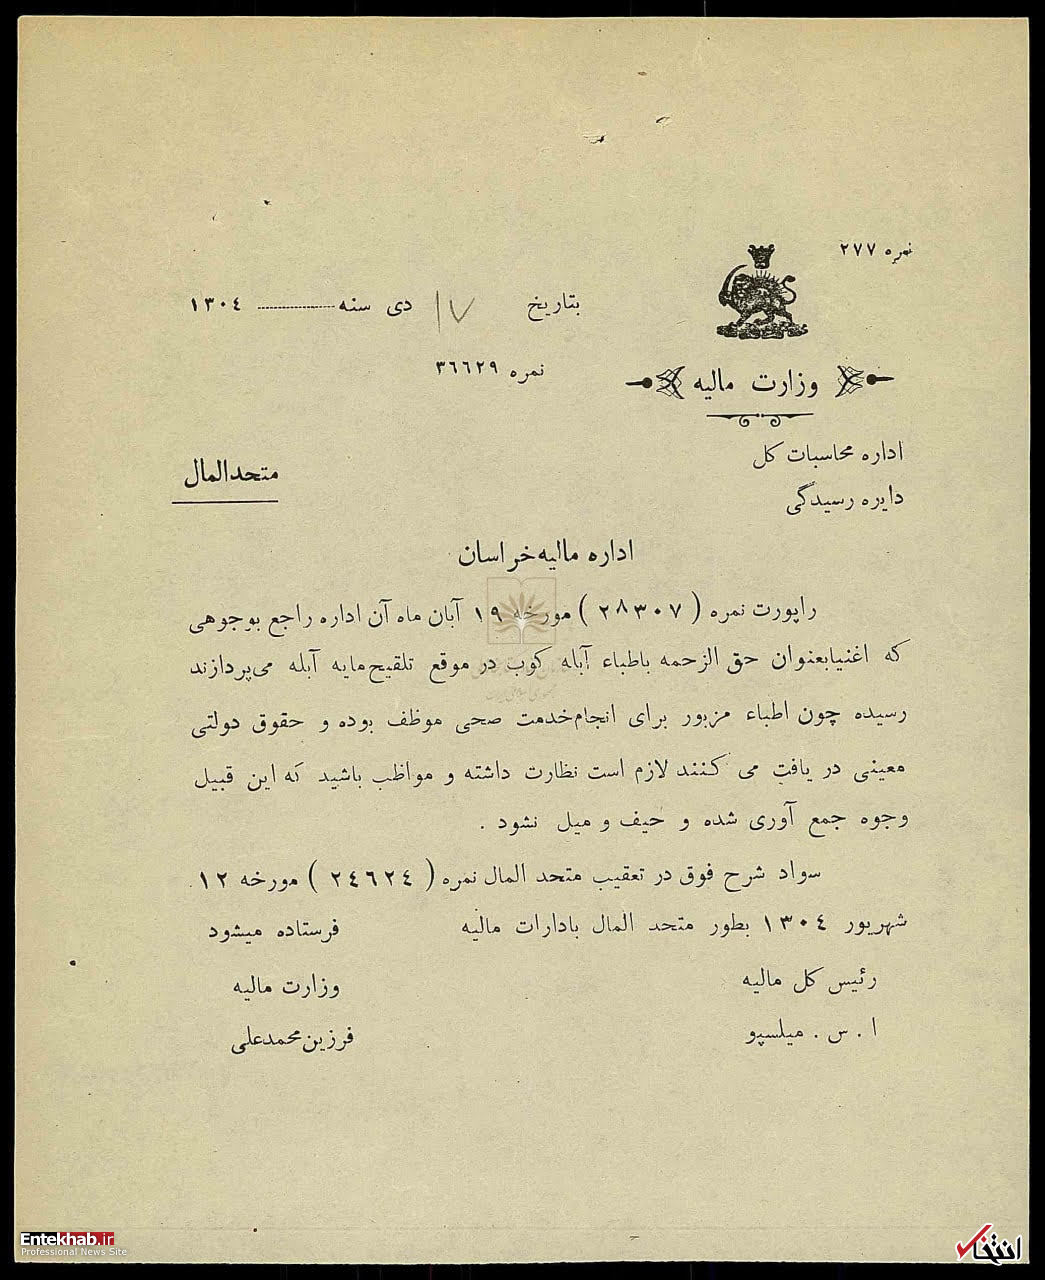 نمره ۲۷۷
بتاریخ ۱۷ دی سنه ............ ۱۳۰٤
نمره ۳٦٦۲۹
وزارت مالیه
اداره محاسبات کل
دایره رسیدگی
متحدالمال
اداره مالیه خراسان
راپورت نمره ( ۲۸۳۰۷ ) مورخه ۱۹ آبان ماه آن اداره راجع بوجوهی
که اغنیا بعنوان حق الزحمه باطباء آبله کوب در موقع تلقیح مایه آبله می‌پردازند
رسیده چون اطباء مزبور برای انجام خدمت صحی موظف بوده و حقوق دولتی
معینی دریافت می کنند لازم است نظارت داشته و مواظب باشید که این قبیل
وجوه جمع آوری شده و حیف و میل نشود .
سواد شرح فوق در تعقیب متحد المال نمره ( ۲٤٦۲٤ ) مورخه ۱۲
شهریور ۱۳۰٤ بطور متحد المال بادارات مالیه فرستاده میشود
رئیس کل مالیه وزارت مالیه
ا . س . میلسپو فرزین محمدعلی
Entekhab.ir
Professional News Site
انتخاب